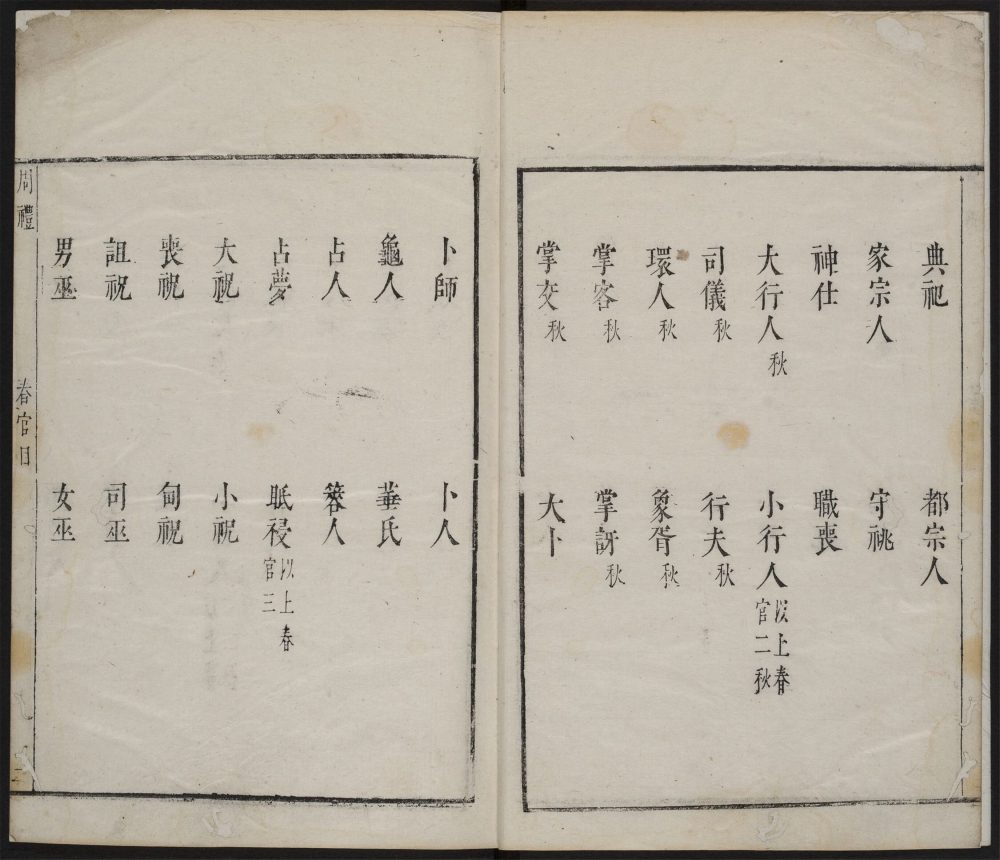 典祀 都宗人
家宗人 守祧
神仕 職喪
大行人秋 小行人以上春官二秋
司儀秋 行夫秋
環人秋 象胥秋
掌客秋 掌訝秋
掌交秋 大卜
卜師 卜人
龜人 菙氏
占人 簭人
占夢 眡祲以上春官三
大祝 小祝
喪祝 甸祝
詛祝 司巫
男巫 女巫
周禮 春官目